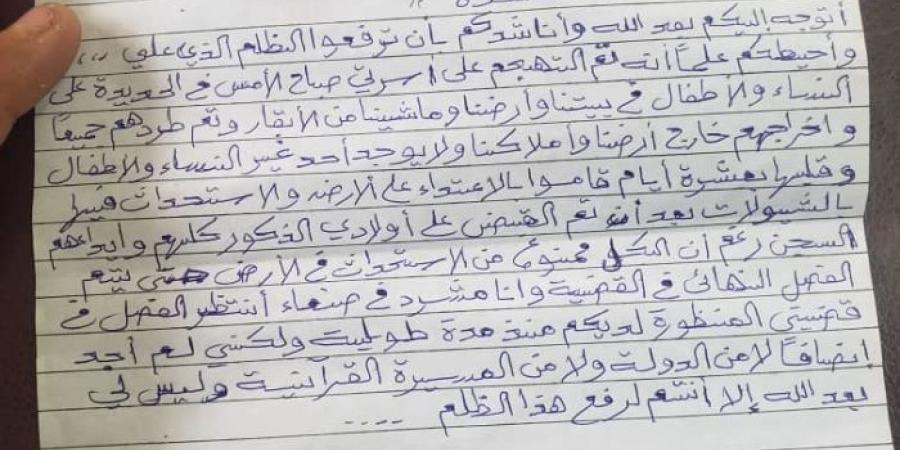 أتوجه إليكم بعد الله وأناشدكم بأن ترفعوا الظلم الذي علي ,,,
وأحيطكم علماً أنه تم التهجم على أسرتي صباح الأمس في الحديدة على
النساء والأطفال في بيتنا وأرضنا وماشيتنا من الأبقار وتم طردهم جميعاً
واخراجهم خارج أرضنا وأملاكنا ولا يوجد أحد غير النساء والأطفال
وقبلها بعشرة أيام قاموا بالاعتداء على الأرض والاستحداث فيها
بالشيولات بعد أن تم القبض على أولادي الذكور كلهم وايداعهم
السجن رغم أن الكل ممنوع من الاستحداث في الأرض حتى يتم
الفصل النهائي في القضية وانا متشرد في صنعاء أنتظر الفصل في
قضيتي المنظورة لديكم منذ مدة طويلة ولكنني لم أجد
انصافاً لا من الدولة ولا من المسيرة القرآنية وليس لي
بعد الله إلا أنتم لرفع هذا الظلم ....